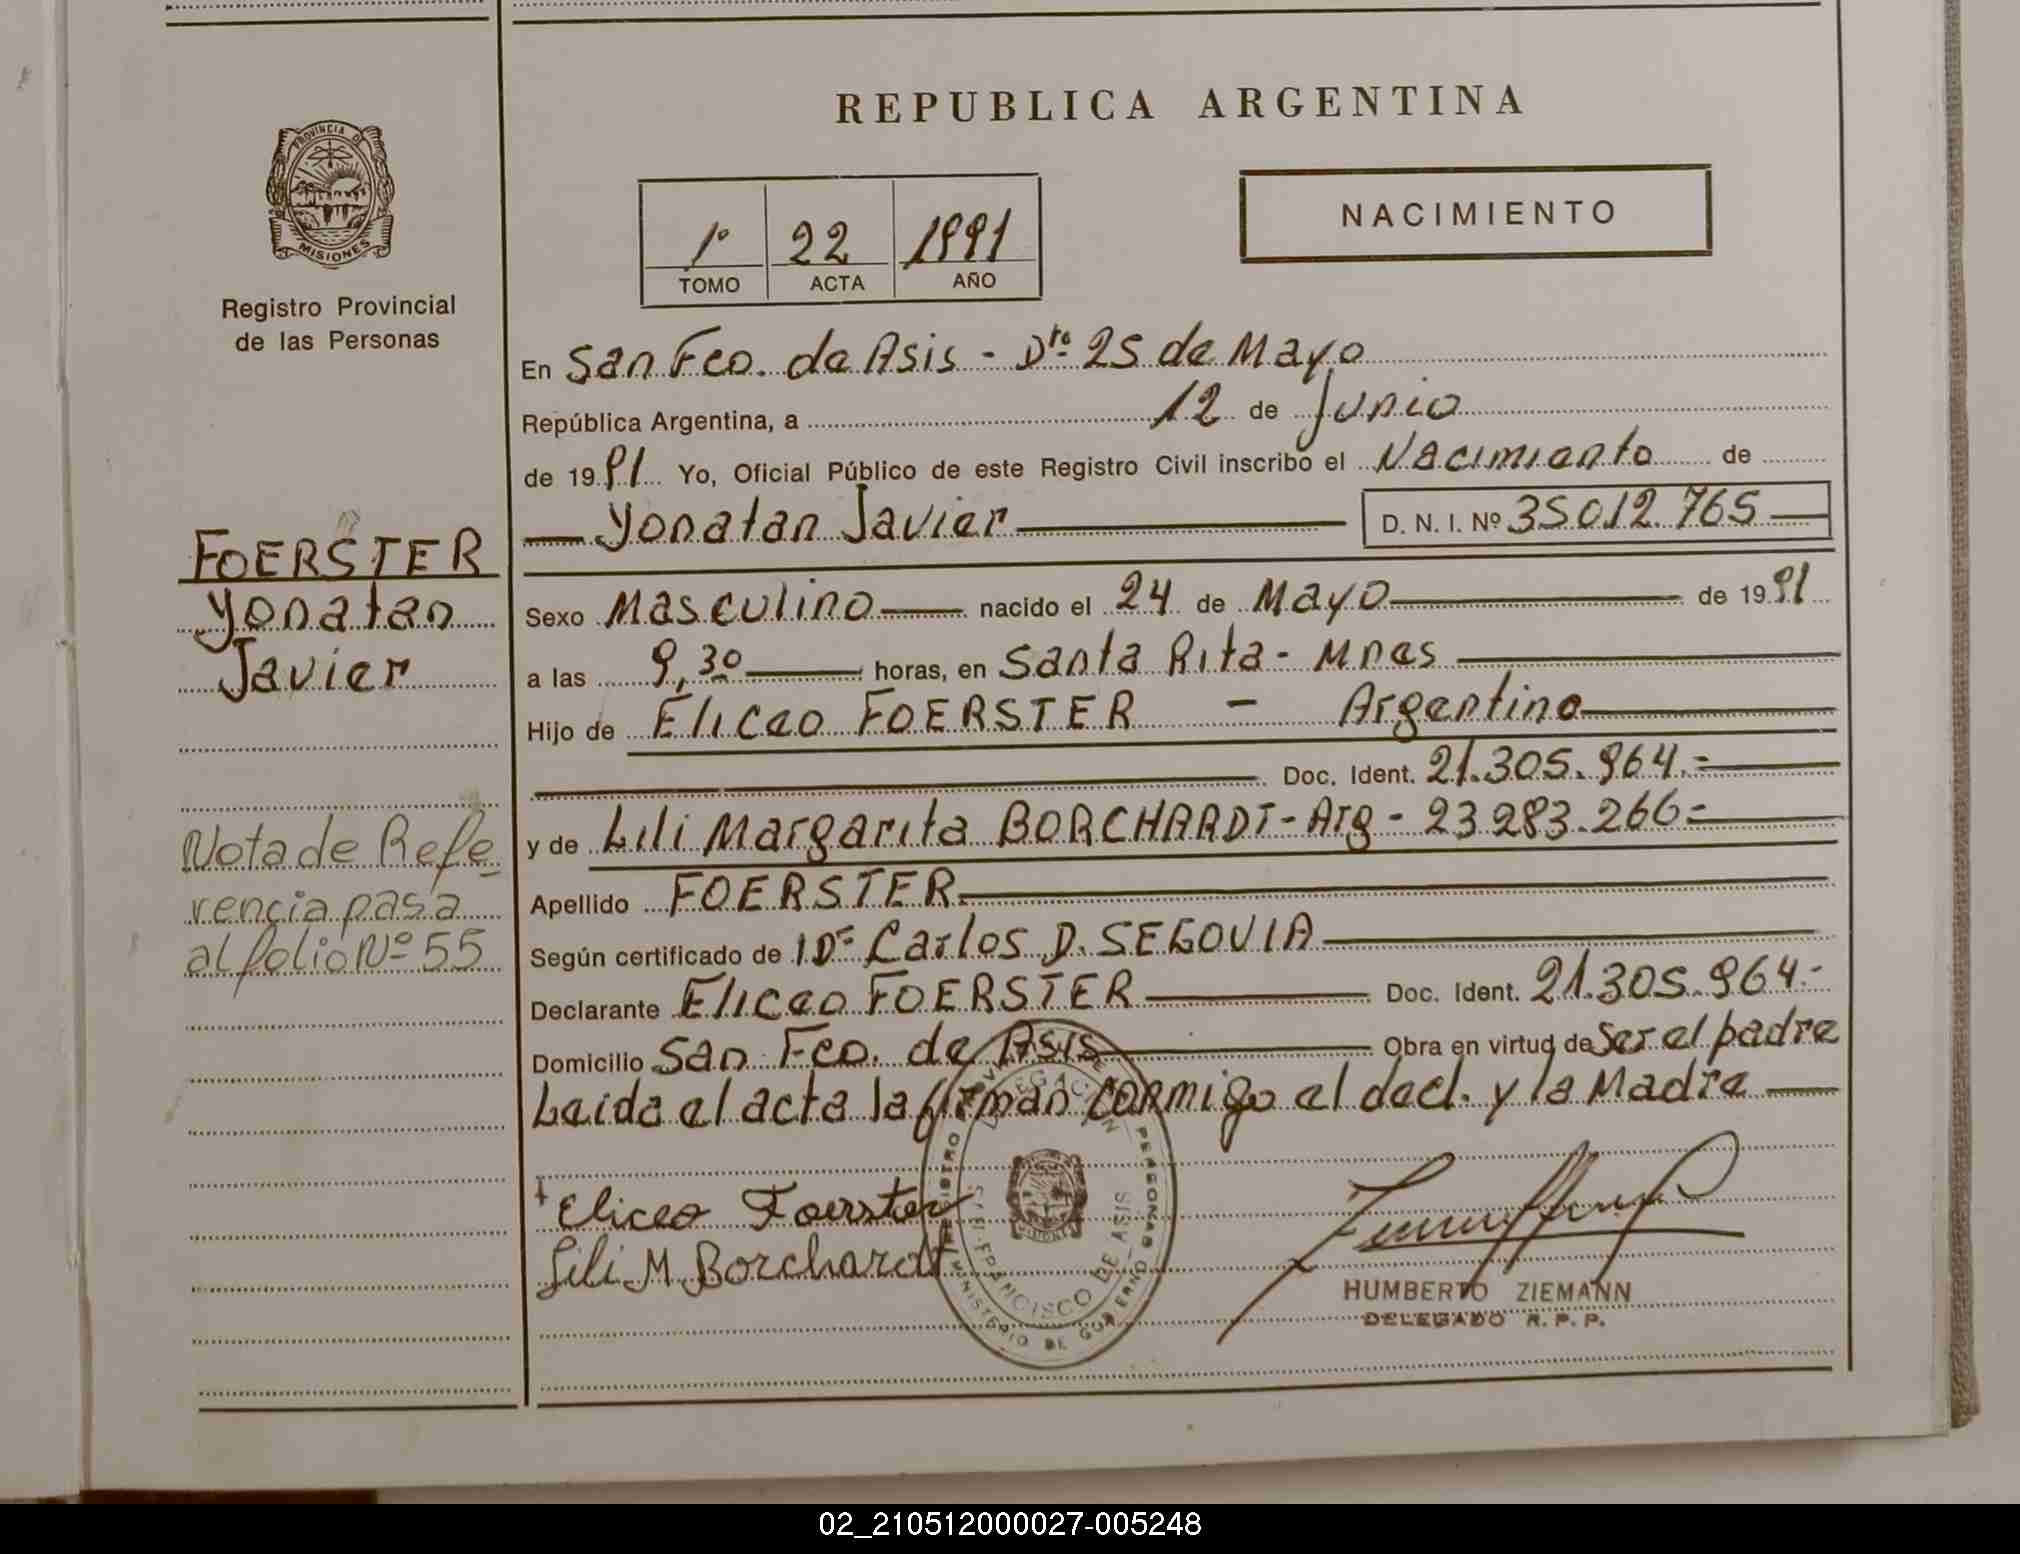 REPUBLICA ARGENTINA
PROVINCIA DE
MISIONES
Registro Provincial
de las Personas
1º 22 1991
TOMO ACTA AÑO
NACIMIENTO
En San Fco. de Asis - Dto. 25 de Mayo
República Argentina, a 12 de Junio
de 1991 Yo, Oficial Público de este Registro Civil inscribo el Nacimiento de
Yonatan Javier D. N. I. Nº 35012.765
FOERSTER
Yonatan
Javier
Sexo Masculino nacido el 24 de Mayo de 1991
a las 9,30 horas, en Santa Rita - Mnes
Hijo de Eliceo FOERSTER - Argentino
Doc. Ident. 21.305.964.=
y de Lili Margarita BORCHARDT - Arg - 23283.266=
Nota de Refe
rencia pasa
al folio Nº 55
Apellido FOERSTER
Según certificado de Dr Carlos D. SEGOVIA
Declarante Eliceo FOERSTER Doc. Ident. 21.305.964.-
Domicilio San Fco. de Asis Obra en virtud de Ser el padre
Leida el acta la firman conmigo el decl. y la Madre
Eliceo Foerster
Lili M Borchardt
DELEGACION
FRANCISCO DE ASIS
MINISTERIO DE GOBIERNO
HUMBERTO ZIEMANN
DELEGADO R. P. P.
02_210512000027-005248